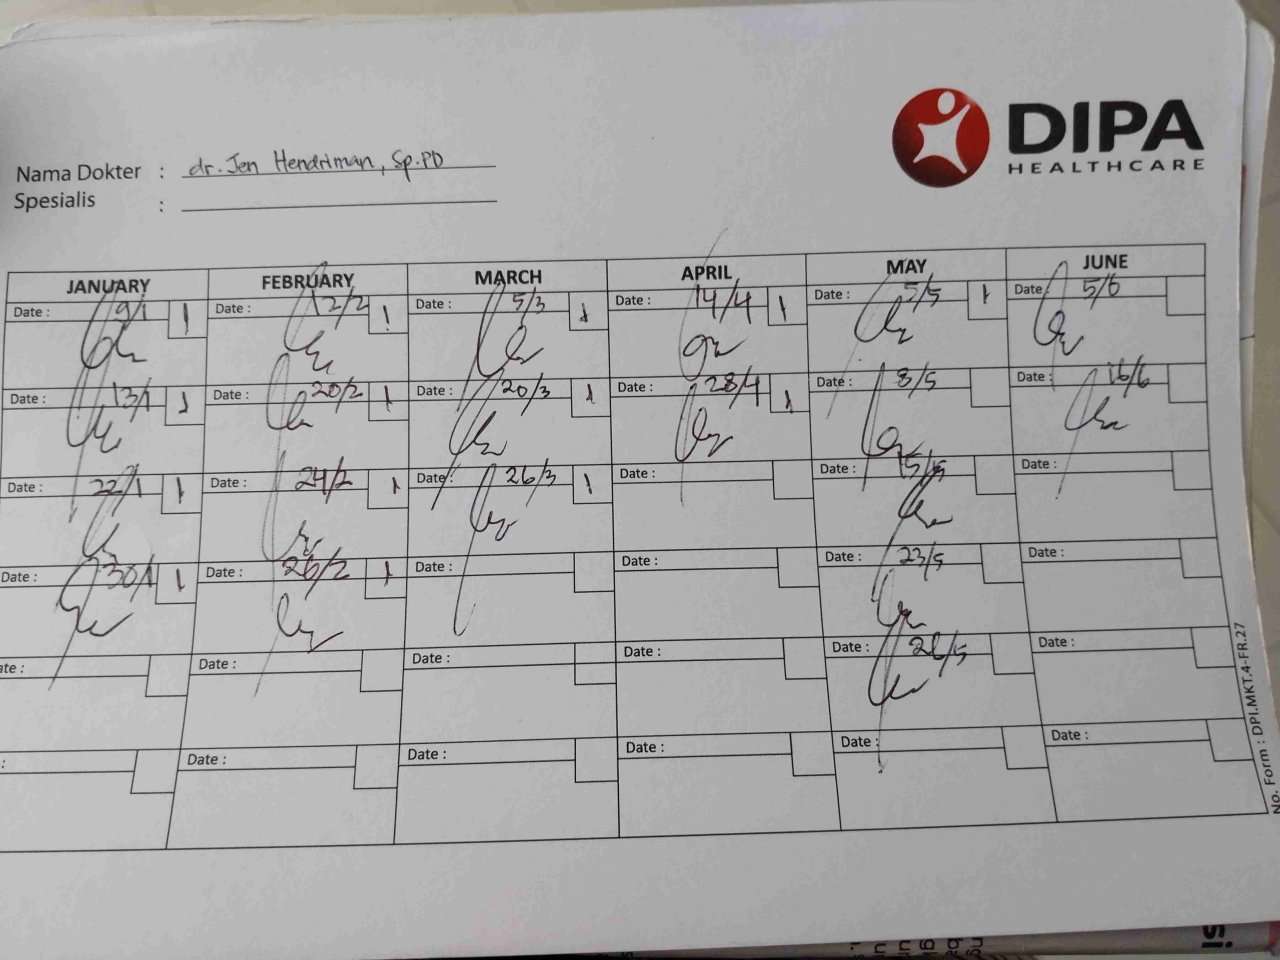 DIPA
HEALTHCARE
Nama Dokter : dr. Jen Hendriman, Sp.PD
Spesialis :
JANUARY FEBRUARY MARCH APRIL MAY JUNE
Date : 9/1 1 Date : 12/2 1 Date : 5/3 1 Date : 14/4 1 Date : 5/5 1 Date : 5/6
Date : 13/1 1 Date : 20/2 1 Date : 20/3 1 Date : 28/4 1 Date : 8/5 Date : 16/6
Date : 22/1 1 Date : 24/2 1 Date : 26/3 1 Date : Date : 15/5 Date :
Date : 30/1 1 Date : 26/2 1 Date : Date : Date : 23/5 Date :
ate : Date : Date : Date : Date : 26/5 Date :
: Date : Date : Date : Date : Date :
No. Form : DPI.MKT.4-FR.27
si